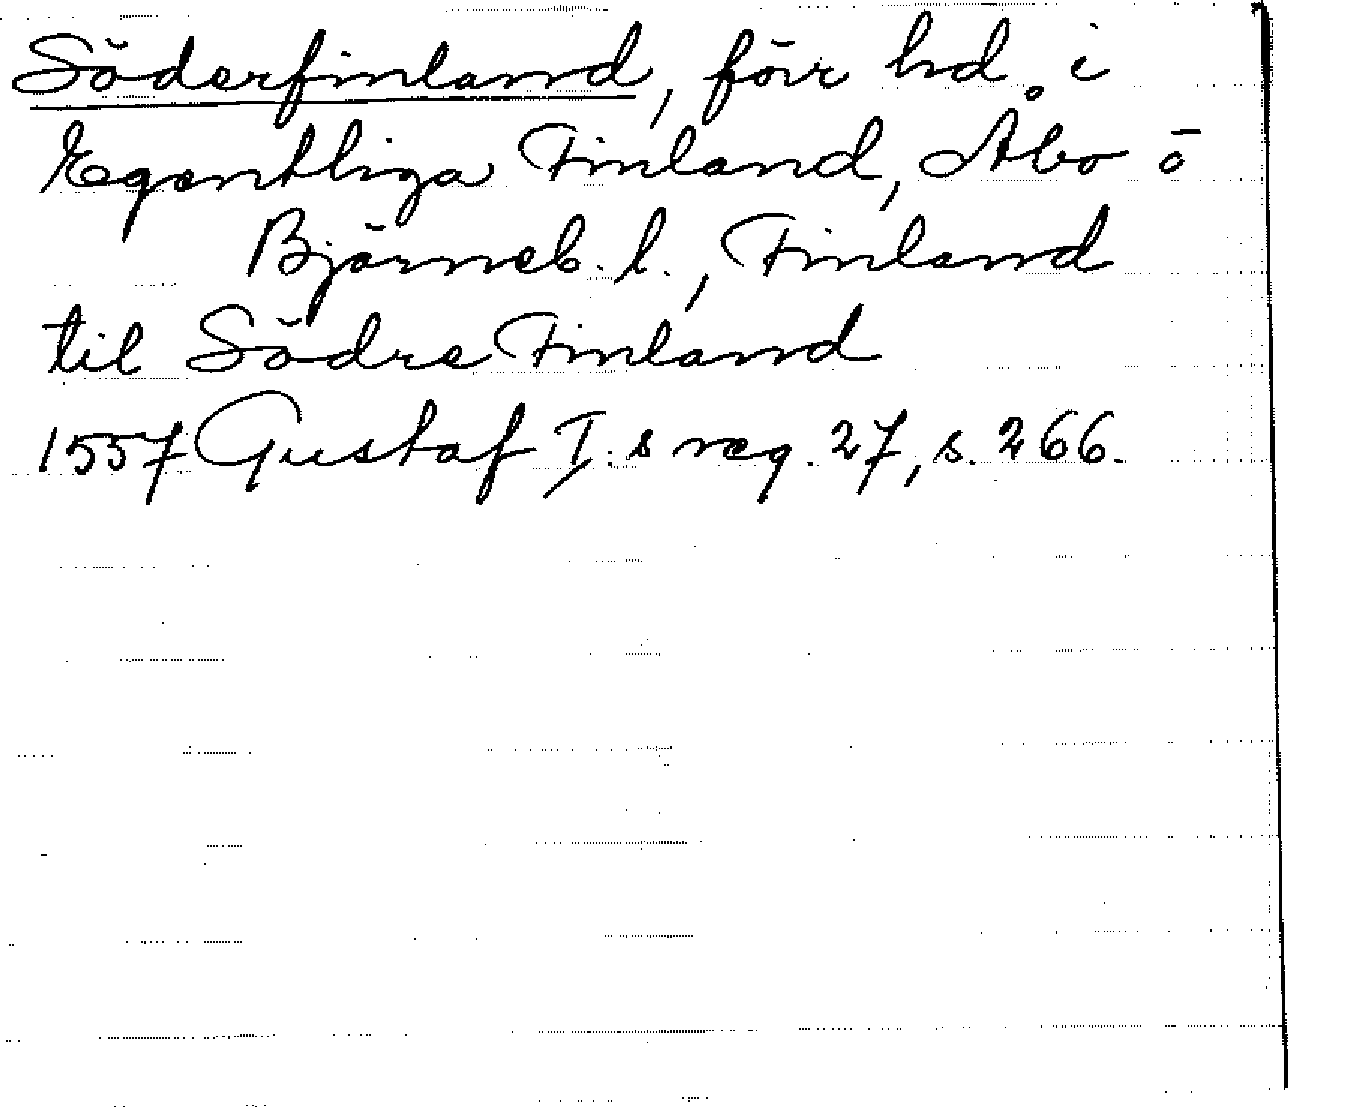 Söderfinland, förr hd i
Egentliga Finland, Åbo o
Björneb. l., Finland
til Södre Finland
1557 Gustaf I:s reg. 27, s. 266.